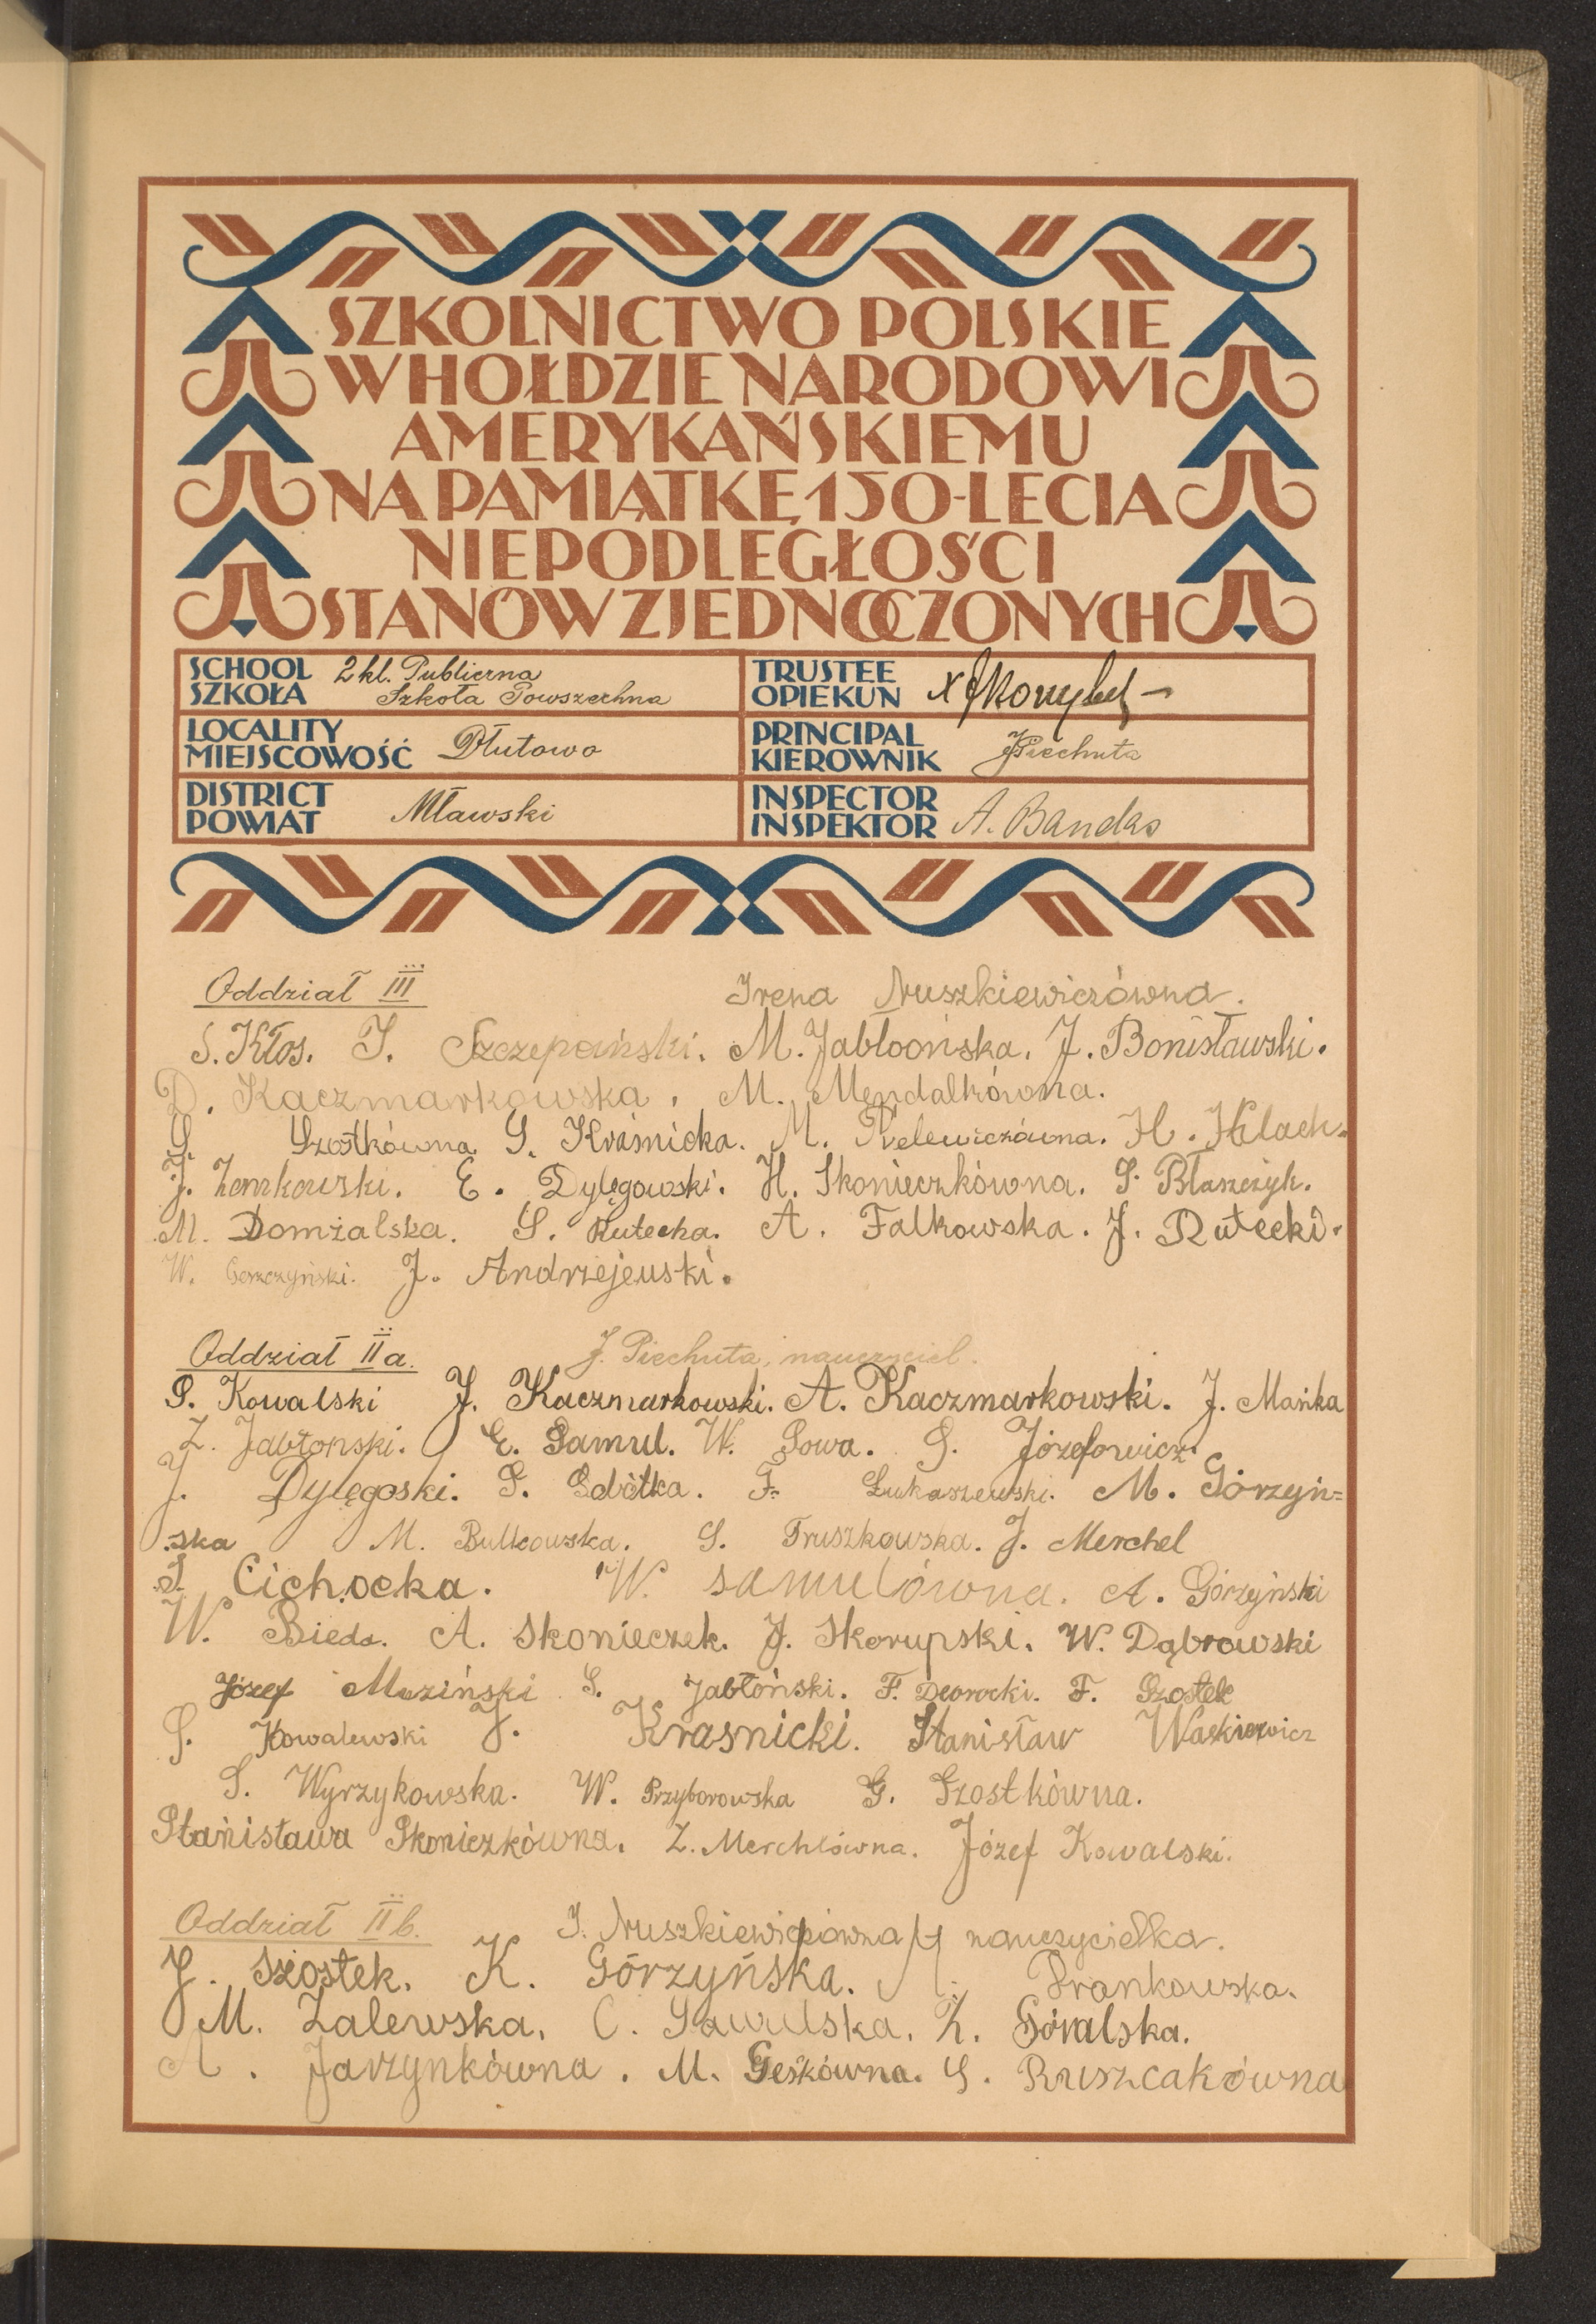 SZKOLNICTWO POLSKIE
W HOŁDZIE NARODOWI
AMERYKAŃSKIEMU
NA PAMIĄTKĘ 150-LECIA
NIEPODLEGŁOŚCI
STANÓW ZJEDNOCZONYCH
SCHOOL SZKOŁA 2 kl. Publiczna
Szkoła Powszechna
TRUSTEE
OPIEKUN
LOCALITY
MIEJSCOWOŚĆ Dłutowo
PRINCIPAL
KIEROWNIK JPiechuta
DISTRICT
POWIAT Mławski
INSPECTOR
INSPEKTOR A. Bandas
Oddział III Irena Nuszkiewiczówna.
S. Kłos. J. Szczepański. M. Jabłoońska. J. Bonisławski.
D. Kaczmarkowska. M. Mendalkówna.
S. Szostkówna S. Kraśnicka. M. Relewiczówna. H.
J. Zomkowski. E. Dylęgowski. H. Skonieczkówna. S. Błaszczyk.
M. Domżalska. S. Rutecka. A. Falkowska. J. Rutecki.
W. J. Andrzejewski.
Oddział IIa. J. Piechuta, nauczyciel.
S. Kowalski J. Kaczmarkowski. A. Kaczmarkowski. J. Mańka
Z. Jabłonski. E. Samul. W. Sowa. S. Józefowicz
J. Dylęgoski. S. F. Łukaszewski. M. Górzyń=
ska M. Bulkowska. S. Truszkowska. J. Merchel
S. Cichocka. W. samulówna. A. Górzyński
W. Bieda. A. Skonieczek. J. Skorupski. W. Dąbrowski
Józef Muziński S. Jabłoński. F. Dworocki. F. Szostek
S. Kowalewski J. Krasnicki. Stanisław Waśkiewicz
S. Wyrzykowska. W. Przyborowska G. Szostkówna.
Stanisława Skoniczkówna. Z. Merchlówna. Józef Kowalski.
Oddział IIb. I. Nuszkiewiczówna nauczycielka.
J. Szostek. K. Górzyńska. M. Prankowska.
M. Zalewska. C. Gawulska. Z. Góralska.
A. Jarzynkówna. M. Geskówna. S. Ruszcakówna